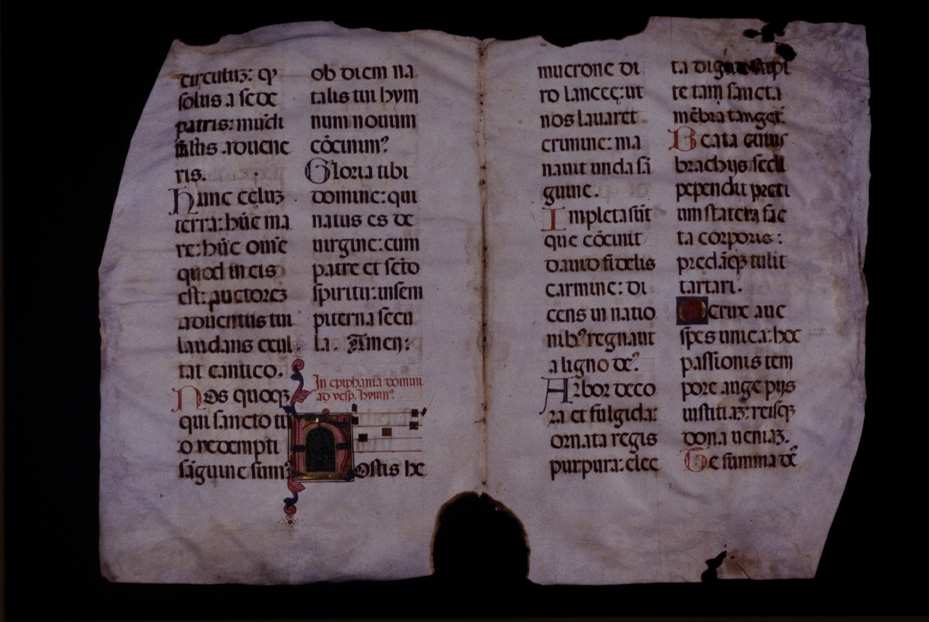 circuluz: qͥ
solus a sede
patris: mūdi
salus aduene
ris.
Hunc celuz
terra: hūc ma
re: hūc om̄e
quod in eis
est: auctorez
aduentus tui
laudans exul
tat cantico.
Nos quoqꝫ
qui sancto tu
o redempti
sāguine sum⁹
ob diem na
talis tui hym
num nouum
cōcinim⁹
Gloria tibi
domine: qui
natus es de
uirgine: cum
patre et sc̄to
spiritu: in sem
piterna secu
la. Amen:
In epiphania domini
ad vesp. hymn⁹.
Hostis he
mucrone di
ro lancee: ut
nos lauaret
crimine: ma
nauit unda sā
guine.
Impleta sūt
que cōcinit
dauid fidelis
carmine: di
cens in natio
nib⁹ regnauit
a ligno de⁹.
Arbor deco
ra et fulgida:
ornata regis
purpura: elec
ta digno stipi
te tam sancta
mēbra tangeř.
Beata cuius
brachijs secli
pependit preti
um statera fac
ta corporis:
predāqꝫ tulit
tartari.
O crux aue
spes unica: hoc
passionis tem
pore auge pijs
iustitiaz: reisqꝫ
dona ueniaz.
Te summa de᷒